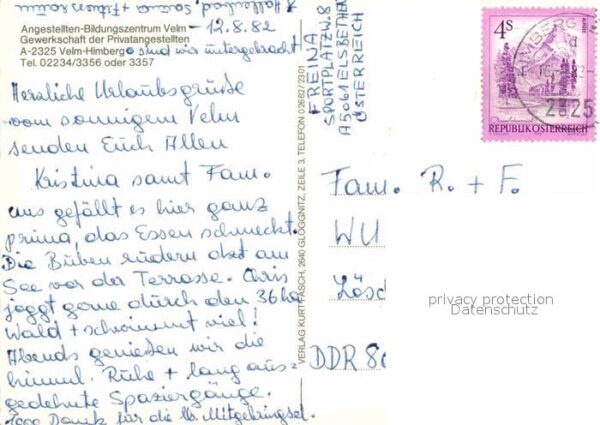 + Hallenbad, Sauna + Fitnessraum
Angestellten-Bildungszentrum Velm - 12.8.82
Gewerkschaft der Privatangestellten
A-2325 Velm-Himberg o sind wir untergebracht
Tel. 02234/3356 oder 3357
Herzliche Urlaubsgrüße
vom sonnigem Velm
senden Euch Allen
Kristina samt Fam.
uns gefällt es hier ganz
prima, das Essen schmeckt.
Die Buben rudern dzt am
See vor der Terrasse. Chris
joggt gerne durch den 36 ha
Wald + schwimmt viel!
Abends genießen wir die
himml. Ruhe + lang aus-
gedehnte Spaziergänge.
1000 Dank für die lb. Mitbringsel.
VERLAG KURT FASCH, 2640 GLOGGNITZ, ZEILE 3, TELEFON 0 26 62 / 23 01
FREINA
SPORTPLATZW. 8
A 5061 ELSBETHEN
ÖSTERREICH
4S
HIMBERG
2325
REPUBLIK ÖSTERREICH
Fam. R. + F.
WU
Lösc
DDR 80
privacy protection
Datenschutz